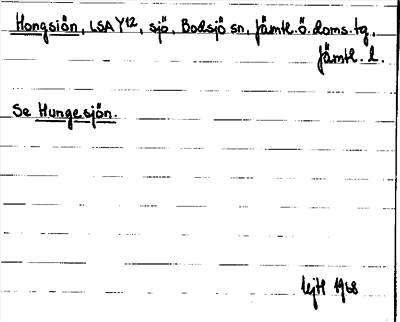 Hongsiön, LSA Y12, sjö, Bodsjö sn, Jämtl. ö. doms. tg.,
Jämtl. l.
Se Hungesjön.
1968